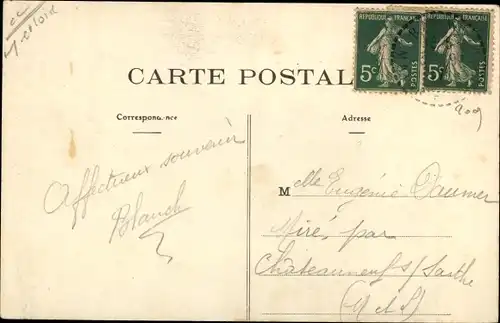 M et Loire
RÉPUBLIQUE FRANÇAISE
5c
POSTES
RÉPUBLIQUE FRANÇAISE
5c
POSTES
CARTE POSTALE
Correspondance
Adresse
Affectueux souvenir
Blanche
Melle Eugénie Daumer
Miré, par
Châteauneuf s/ Sarthe
(M & L)